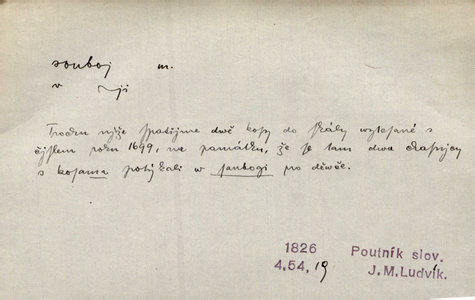 souboj m.
v ~ji
Trochu njže spatřjme dwě kosy do skály wytesané s
čjslem roku 1699, na památku, že se tam dwa chasnjcy
s kosama potýkali w saubogi pro děwče.
1826 Poutník slov.
4.54, 19 J.M.Ludvík.